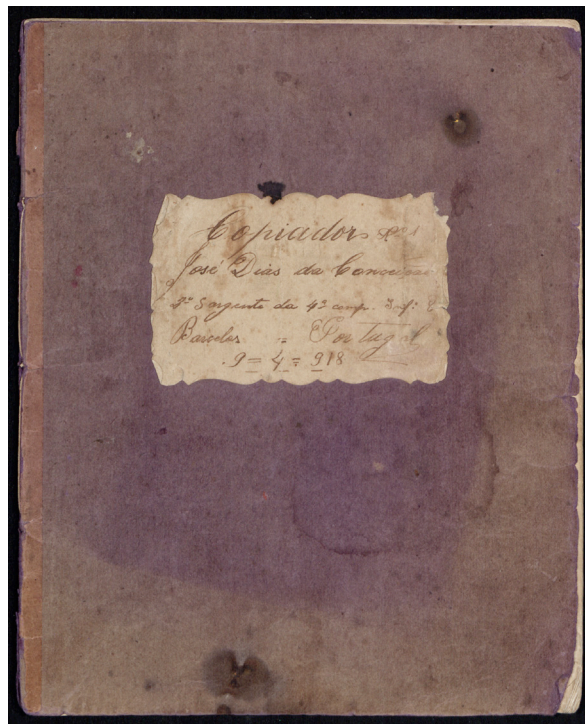 Copiador Nº 1
José Dias da Conceição
2º Sargento da 4ª comp. Inf:
Barcelos = Portugal
9 = 4 = 918